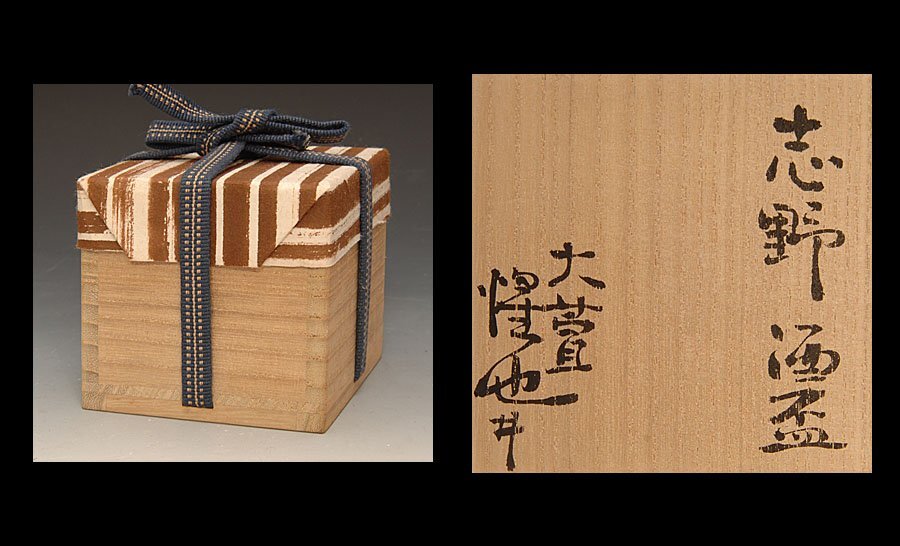 志野酒盃
大萱
燿也